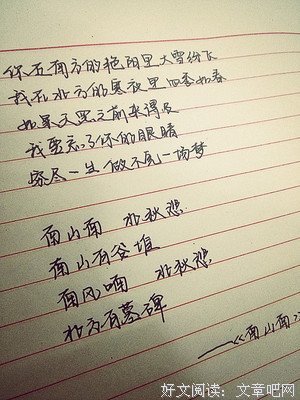 你在南方的艳阳里大雪纷飞
我在北方的寒夜里四季如春
如果天黑之前来得及
我要忘了你的眼睛
穷尽一生 做不完一场梦
南山南 北秋悲
南山有谷堆
南风喃 北秋悲
北方有墓碑
——《南山南》
好文阅读：文章吧网